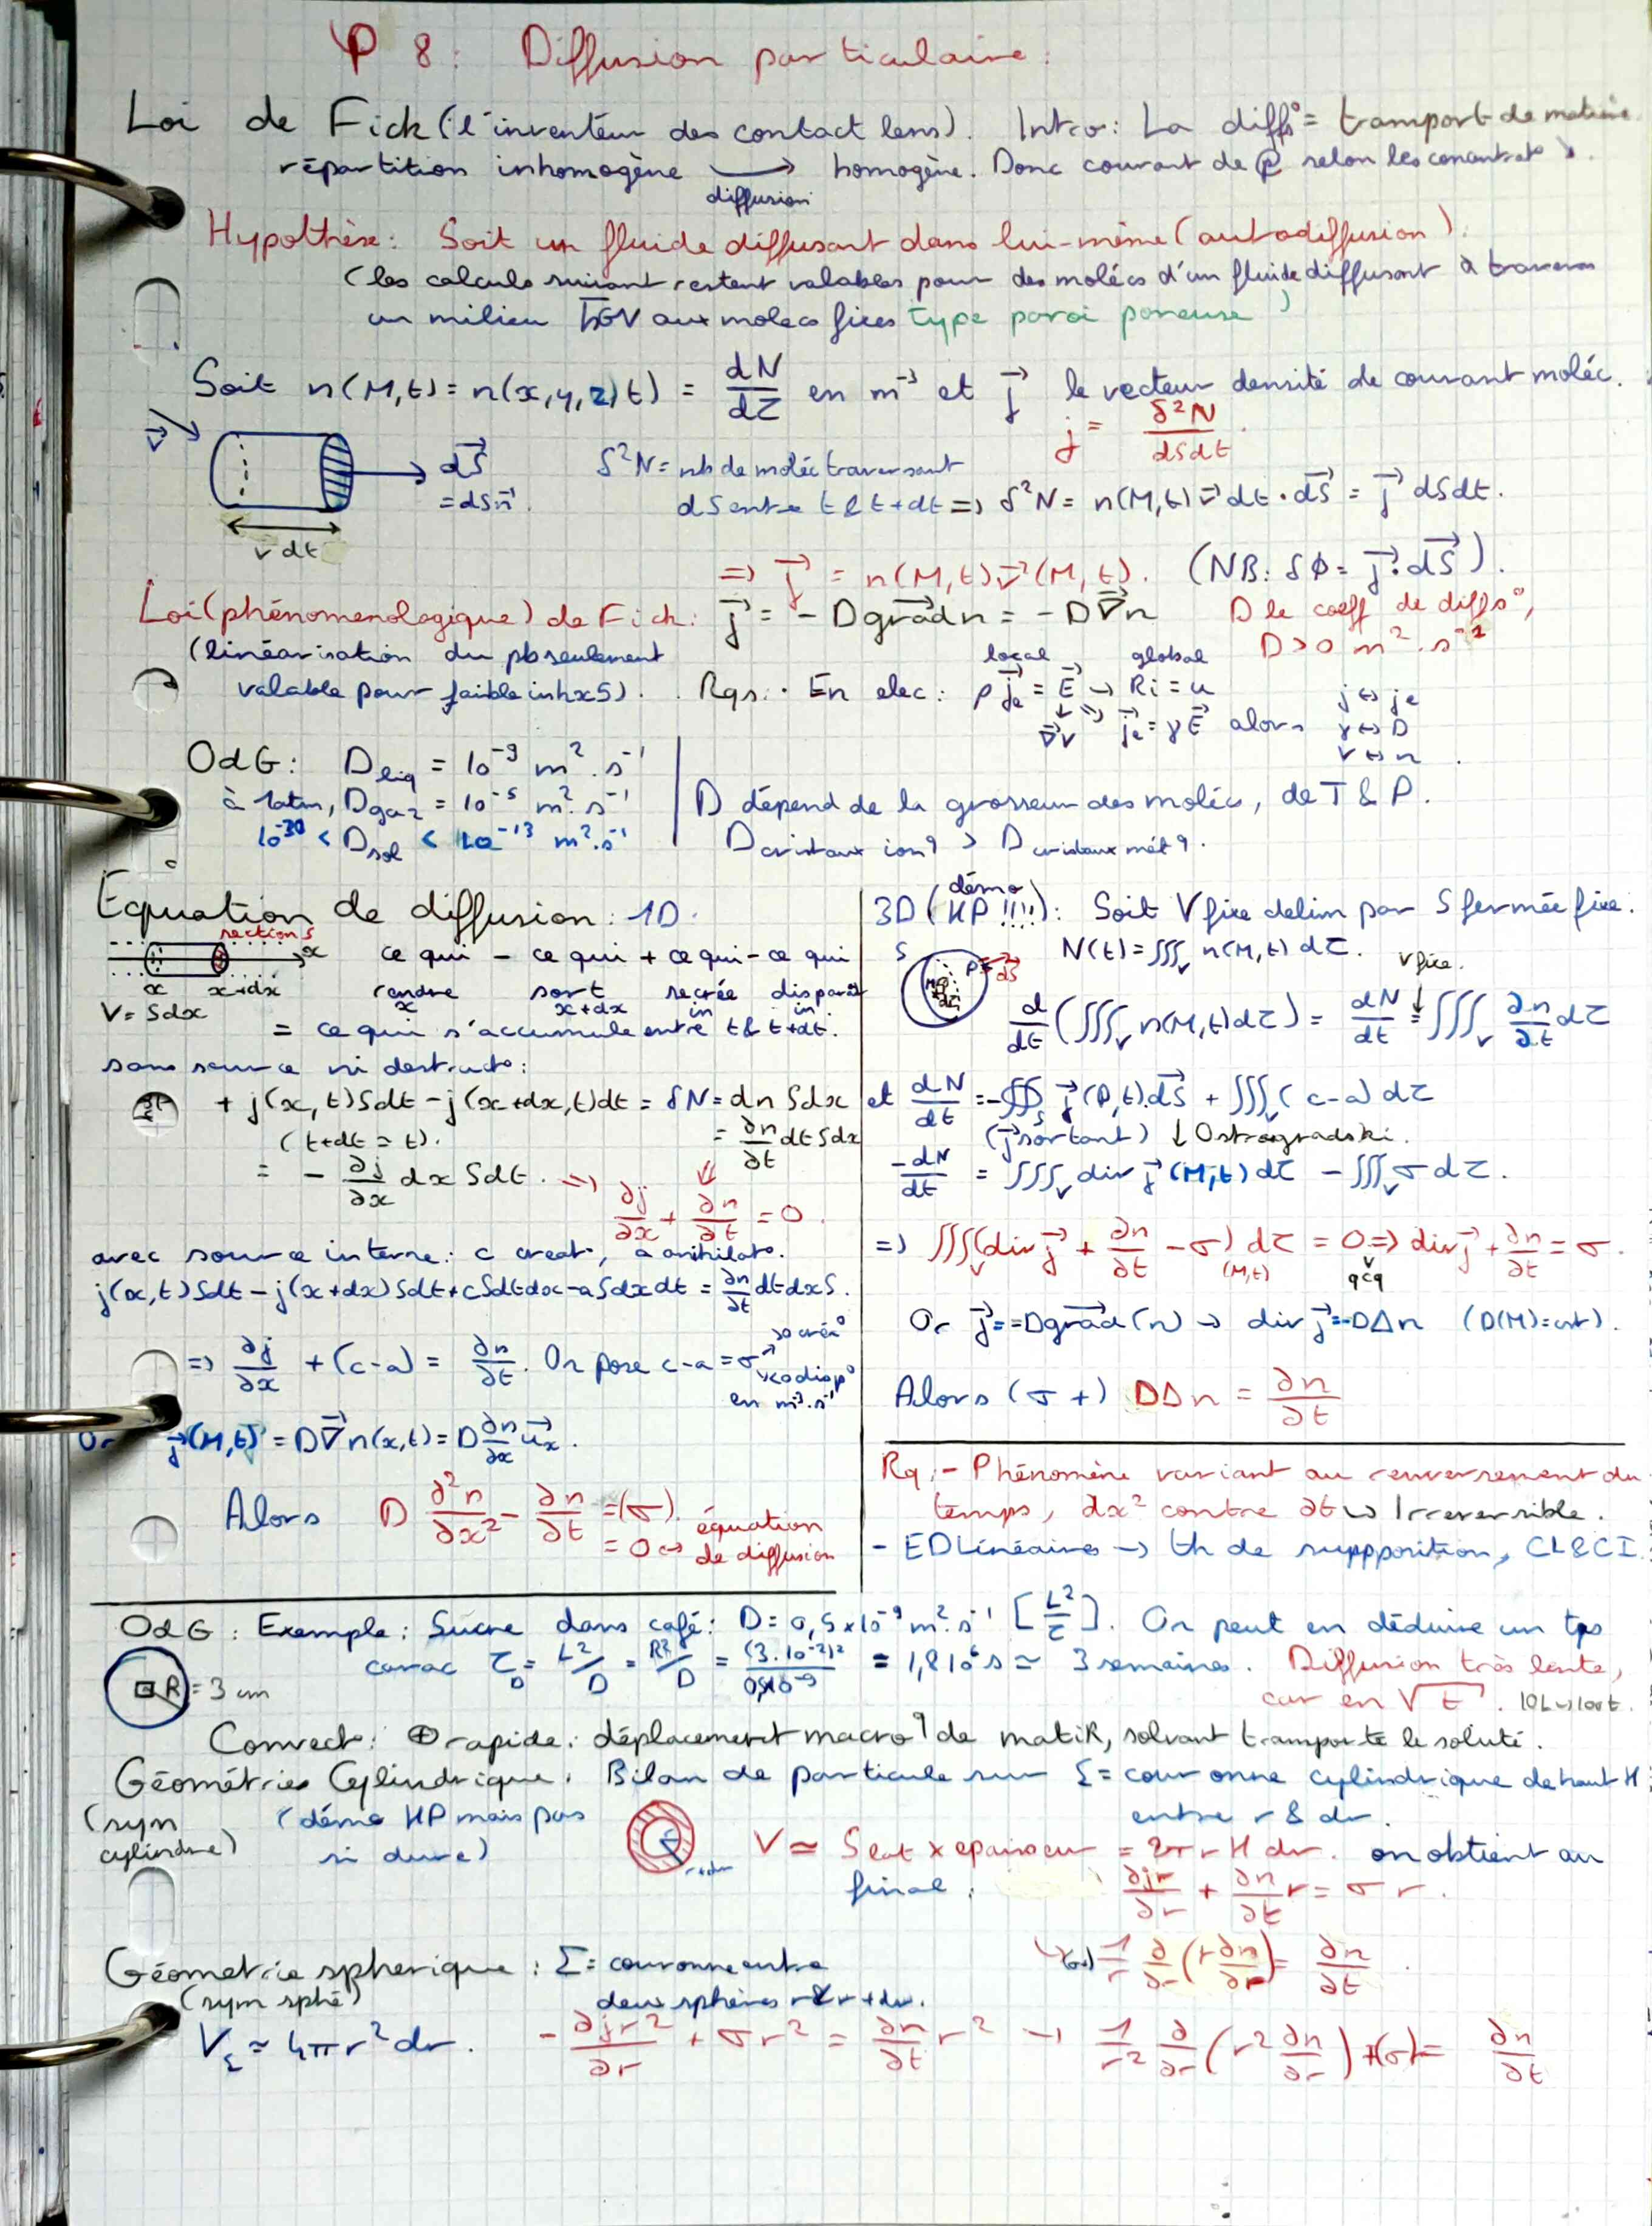 φ 8 : Diffusion particulaire :
Loi de Fick (l'inventeur des contact lens). Intro : La diffs° = transport de matière.
répartition inhomogène → homogène. Donc courant de ⓟ selon les concentrat° ↘.
diffusion
Hypothèse : Soit un fluide diffusant dans lui-même (autodiffusion).
(les calculs suivant restent valables pour des molécs d'un fluide diffusant à travers
un milieu aux molecs fixes type paroi poreuse)
Soit n(M,t) = n(x,y,z,t) = dN/dτ en m⁻³ et j⃗ le vecteur densité de courant moléc.
j = δ²N/dSdt.
v⃗
dS⃗
= dS n⃗.
v dt
δ²N = nb de moléc traversant
dS entre t & t+dt ⇒ δ²N = n(M,t) v⃗ dt · dS⃗ = j⃗ dSdt.
⇒ j⃗ = n(M,t) v⃗ (M,t). (NB : δϕ = j⃗ · dS⃗).
Loi (phénomenologique) de Fick : j⃗ = - D grad n = - D ∇⃗n D le coeff de diffs°,
D > 0 m² . s⁻¹
(linéarisation du pb seulement
valable pour faible inhxs).
Rqs : · En elec : ρ j⃗e = E⃗ → Ri = u
local global
∇⃗V j⃗e = γ E⃗ alors
j ↔ je
γ ↔ D
V ↔ n
OdG : D liq = 10⁻⁹ m² . s⁻¹
à 1atm, D gaz = 10⁻⁵ m² . s⁻¹
10⁻³⁰ < D sol < 10⁻¹³ m².s⁻¹
D dépend de la grosseur des moléc, de T & P.
D cristaux ion9 > D cristaux mét9.
Equation de diffusion : 1D.
section S
x
x x+dx
V = Sdx
ce qui - ce qui + ce qui - ce qui
rendre sort se crée disparait
x x+dx in in
= ce qui s'accumule entre t & t+dt.
sans source ni destruct° :
+ j(x,t)Sdt - j(x+dx,t)dt = δN = dn Sdx
(t+dt ≃ t). = ∂n/∂t dt Sdx
= - ∂j/∂x dx Sdt. ⇒ ∂j/∂x + ∂n/∂t = 0.
avec source interne : c creat°, a anihilat°.
j(x,t)Sdt - j(x+dx)Sdt + cSdtdx - aSdxdt = ∂n/∂t dtdxS.
⇒ ∂j/∂x + (c-a) = ∂n/∂t. On pose c-a = σ >0 créa° <0 disp°
en m⁻³.s⁻¹
Or j⃗(M,t) = D∇⃗n(x,t) = D ∂n/∂x u⃗x.
Alors D ∂²n/∂x² - ∂n/∂t = (σ)
= 0 ↔ équation
de diffusion
3D (démo HP !!!!) : Soit V fixe delim par S fermée fixe.
S
P dS⃗
M
dτ
N(t) = ∭v n(M,t) dτ. V fixe.
d/dt (∭v n(M,t)dτ) = dN/dt = ∭v ∂n/∂t dτ
et dN/dt = -∯s j⃗(P,t).dS⃗ + ∭v (c-a) dτ
(j⃗ sortant) ↓ Ostrogradski.
-dN/dt = ∭v div j⃗ (M,t) dτ - ∭v σ dτ.
⇒ ∭v (div j⃗ + ∂n/∂t - σ) dτ = 0 ⇒ div j⃗ + ∂n/∂t = σ.
(M,t) V qcq
Or j⃗ = -D grad (n) → div j⃗ = -DΔn (D(M) = cst).
Alors (σ +) DΔn = ∂n/∂t
Rq : - Phénomène variant au renversement du
temps, dx² contre ∂t ↪ Irreversible.
- EDLinéaires → th de suppposition, CL & CI.
OdG : Exemple : Sucre dans café : D = 0,5 x10⁻⁹ m².s⁻¹ [L²/τ]. On peut en déduire un tps
carac τD = L²/D = R²/D = (3.10⁻²)²/0,5.10⁻⁹ = 1,8 10⁶ s ≃ 3 semaines. Diffusion très lente,
car en √t. 10L ↪ 100t.
R = 3 cm
Convect° : ⊕ rapide : déplacement macro9 de matiR, solvant transporte le soluté.
Géométries Cylindrique : Bilan de particule sur Σ = couronne cylindrique de haut H
entre r & dr.
(sym cylindre)
(démo HP mais pas
si dure)
r+dr
V ≃ Slat x epaisseur = 2π r H dr. on obtient au
final : ∂jr/∂r + ∂n/∂t r = σ r.
(σ+) 1/r ∂/∂r (r ∂n/∂r) = ∂n/∂t.
Géometrie spherique : Σ = couronne entre
(sym sphé) deux sphères r & r+dr.
VΣ ≃ 4πr²dr. - ∂jr²/∂r + σr² = ∂n/∂t r² → 1/r² ∂/∂r (r² ∂n/∂r) +(σ) = ∂n/∂t